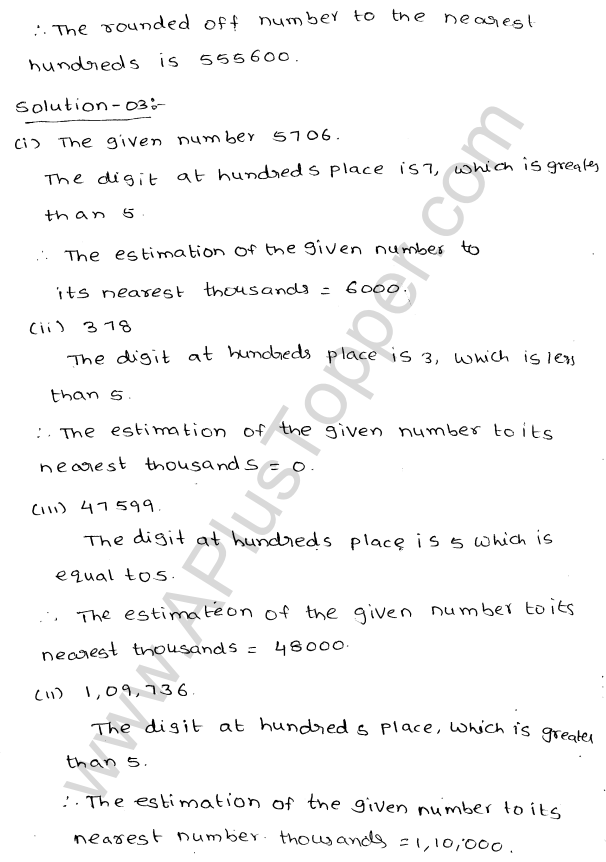 ∴ The rounded off number to the nearest
hundreds is 555600.
Solution-03:-
(i) The given number 5706.
The digit at hundreds place is 7, which is greater
than 5.
∴ The estimation of the given number to
its nearest thousands = 6000.
(ii) 378
The digit at hundreds place is 3, which is less
than 5.
∴ The estimation of the given number to its
nearest thousands = 0.
(iii) 47599.
The digit at hundreds place is 5 which is
equal to 5.
∴ The estimateon of the given number to its
nearest thousands = 48000.
(ii) 1,09,736.
The digit at hundreds place, which is greater
than 5.
∴ The estimation of the given number to its
nearest number thousands = 1,10,000.
www.APlusTopper.com